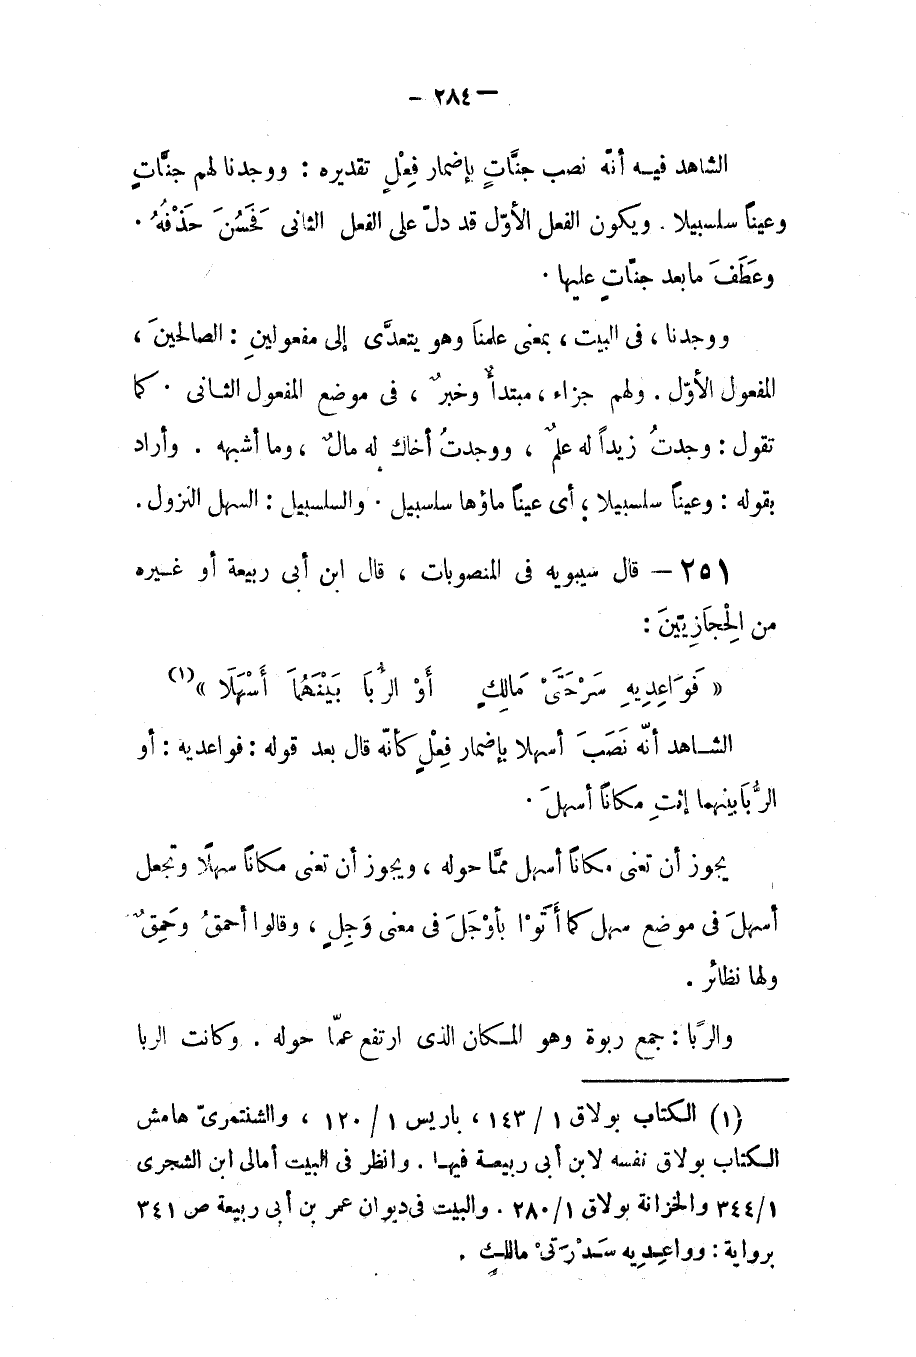 — ٢٨٤ —
الشاهد فيـه أنّه نصب جنَّاتٍ بإضمار فِعْلٍ تقديره : ووجدنا لهم جنَّاتٍ
وعيناً سلسبيلا . ويكون الفعل الأوّل قد دلّ على الفعل الثانى فَحَسُنَ حَذْفُهُ .
وعَطَفَ ما بعد جنّاتٍ عليها .
ووجدنا ، فى البيت ، بمعنى علمنَا وهو يتعدَّى إلى مفعولينِ : الصالحينَ ،
المفعول الأوّل . ولهم جزاء ، مبتدأٌ وخبرٌ ، فى موضع المفعول الثـانى . كما
تقول : وجدتُ زيداً له علمٌ ، ووجدتُ أخاك له مالٌ ، وما أشبهه . وأراد
بقوله : وعيناً سلسبيلا ؛ أى عيناً ماؤها سلسبيل . والسلسبيل : السهل النزول .
٢٥١ — قال سيبويه فى المنصوبات ، قال ابن أبى ربيعة أو غـيره
من الحِجَازِيِّينَ :
« فَوَاعِدِيهِ سَرْحَتَىْ مَالِكٍ أَوْ الرُّبَا بَيْنَهُمَا أَسْهَلَا »(١)
الشــاهد أنّه نَصَبَ أسهلا بإضمار فِعْلٍ كأنّه قال بعد قوله : فواعديه : أو
الرُّبَا بينهما إئتِ مكاناً أسهلَ .
يجوز أن تعنى مكاناً أسهل ممَّا حوله ، ويجوز أن تعنى مكاناً سهلًا وتجعل
أسهلَ فى موضع سهل كما أَتَوْا بأَوْجَلَ فى معنى وَجِلٍ ، وقالوا أحمقُ وحَمِقٌ
ولها نظائر .
والرُّبَا : جمع ربوة وهو المـكان الذى ارتفع عمّا حوله . وكانت الربا
(١) الكتاب بولاق ١ / ١٤٣ ، باريس ١ / ١٢٠ ، والشنتمرىّ هامش
الـكتاب بولاق نفسه لابن أبى ربيعـة فيهـا . وانظر فى البيت أمالى ابن الشجرى
١/ ٣٤٤ والخزانة بولاق ١/ ٢٨٠ . والبيت فى ديوان عمر بن أبى ربيعة ص ٣٤١
برواية : وواعِـدِيه سَـدْرَتَىْ مالكٍ .